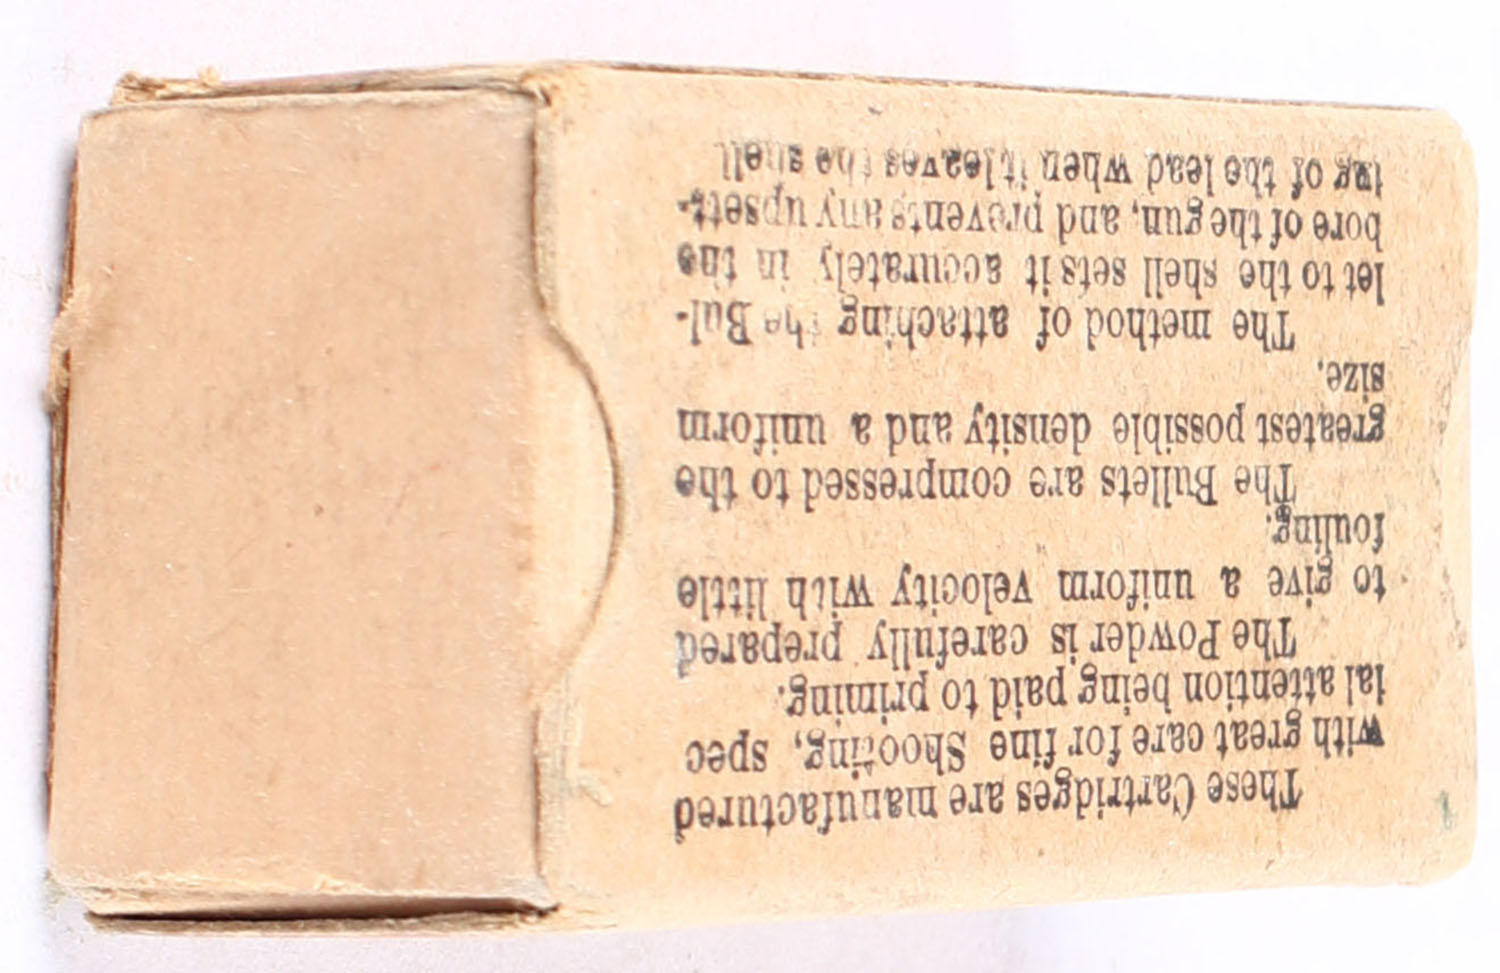 These Cartridges are manufactured
with great care for fine Shooting, spec
ial attention being paid to priming.
The Powder is carefully prepared
to give a uniform velocity with little
fouling.
The Bullets are compressed to the
greatest possible density and a uniform
size.
The method of attaching the Bul-
let to the shell sets it accurately in the
bore of the gun, and prevents any upsett-
ing of the lead when it leaves the shell